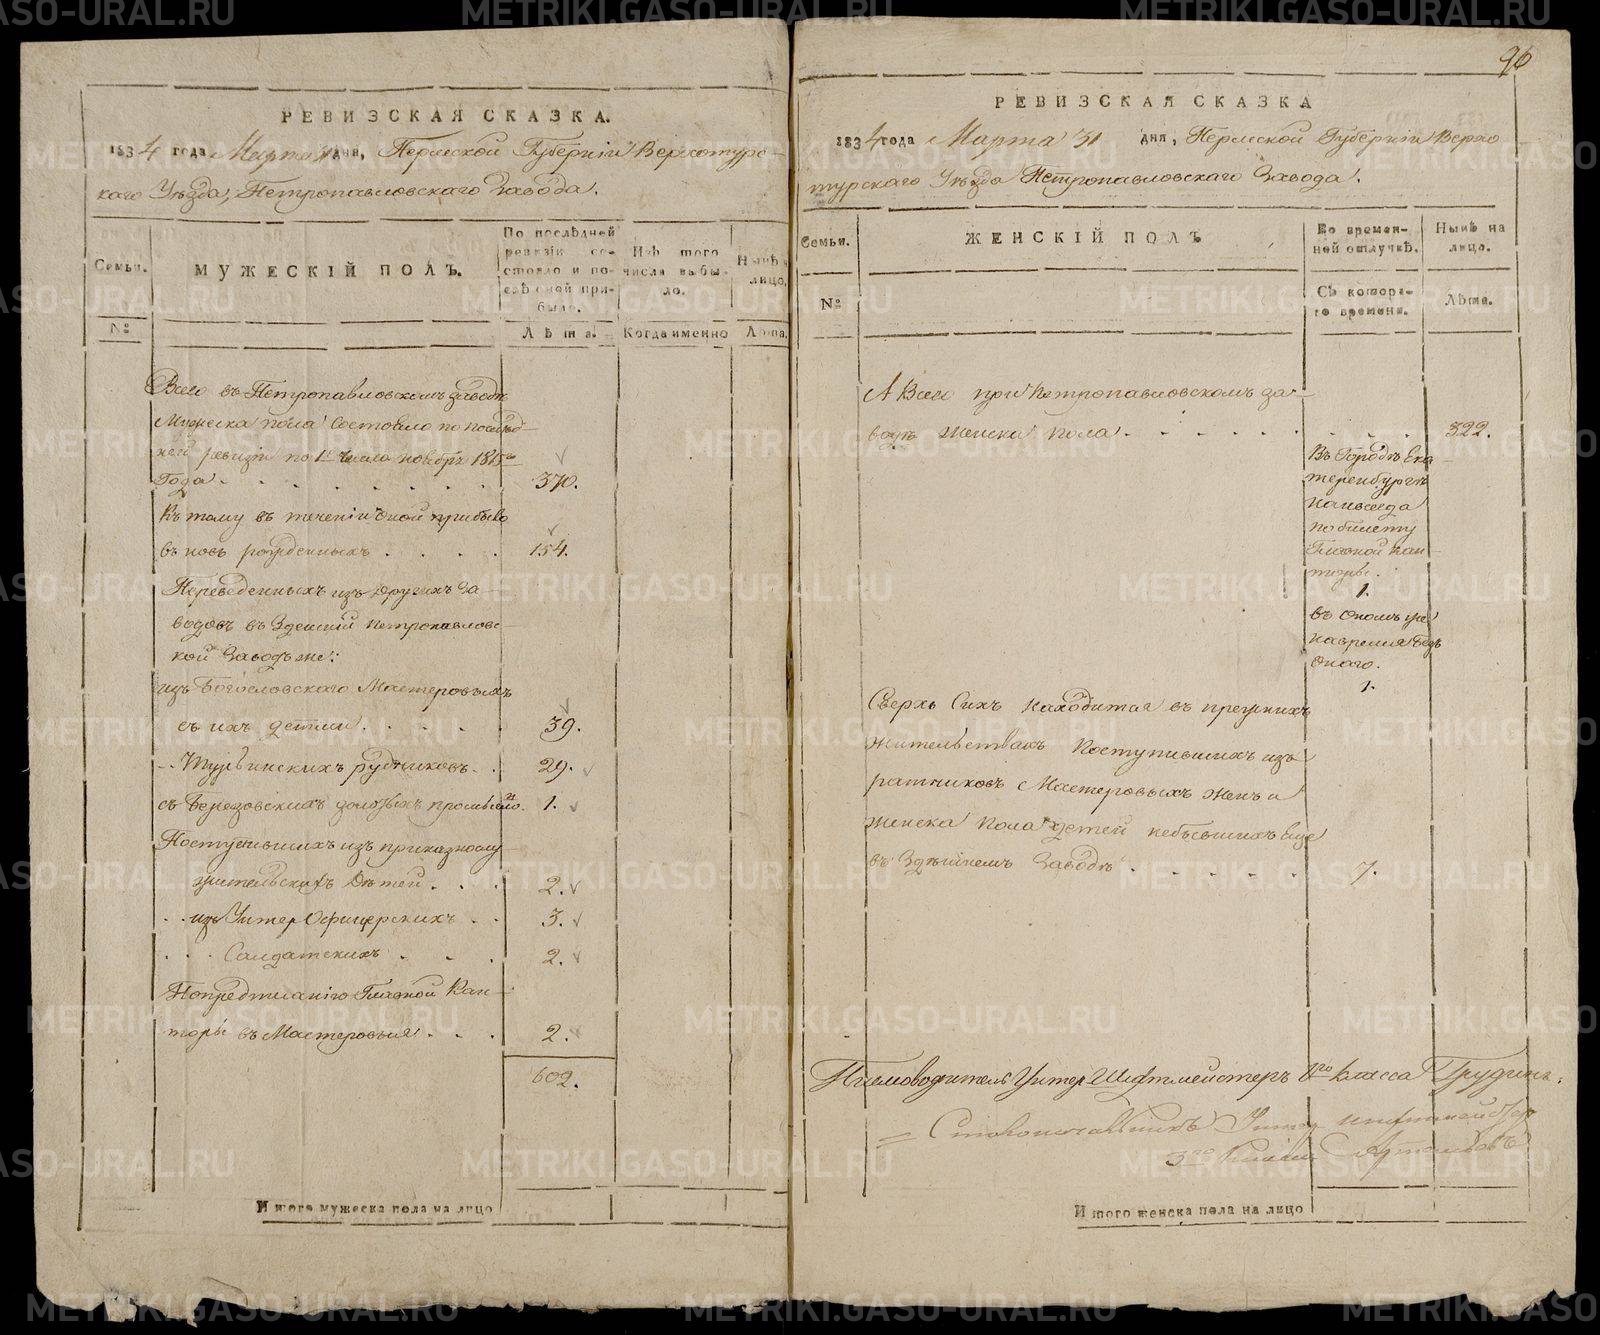 96
РЕВИЗСКАЯ СКАЗКА.
1834 года Марта 31 дня, Пермской Губерніи Верхотурс-
каго Уѣзда, Петропавловскаго Завода.
Семьи.
№
МУЖЕСКІЙ ПОЛЪ.
По послѣдней
ревизіи со-
стояло и по-
слѣ оной при-
было.
Лѣта.
Изъ того
числа выбы-
ло.
Когда именно
Нынѣ на
лицо.
Лѣта.
Всего въ Петропавловскомъ заводѣ
Мужеска пола состояло по послѣд-
ней ревизіи по 1е число ноября 1815го
Года 370.
Къ тому въ теченіи оной прибыло
въ новь рожденныхъ 154.
Переведенныхъ изъ другихъ за-
водовъ въ Здешній Петропавловс-
кой Заводъ же:
изъ Богословскаго Мастеровыхъ
съ ихъ детми 39.
Турьинскихъ рудниковъ 29.
съ Березовскихъ золотыхъ промысло. 1.
Поступившихъ изъ приказно
служительскихъ Дѣтей 2.
изъ Унтер Офицерскихъ 3.
Салдатскихъ 2.
По предписанію Главной Кан-
торы въ Мастеровыя 2.
602.
Итого мужеска пола на лицо
РЕВИЗСКАЯ СКАЗКА
1834 года Марта 31 дня, Пермской Губерніи Верхо
турскаго Уѣзда Петропавловскаго Завода.
Семьи.
№
ЖЕНСКІЙ ПОЛЪ
Во времен-
ной отлучкѣ.
Съ котора-
го времени.
Нынѣ на
лицо.
Лѣта.
А Всего при Петропавловскомъ за-
водѣ женска пола 322.
Въ Городѣ Ека-
теренбургѣ
навсегда
по билету
Главной кан-
торы.
1.
въ ономъ же
на время безъ
онаго.
1.
Сверхъ Сихъ находится въ прежнихъ
жительствахъ Поступившихъ изъ
ратниковъ Мастеровыхъ женъ и
женска пола детей небывшихъ еще
въ Здѣшнемъ Заводѣ 7.
Писмоводитель Унтер Шихтмейстеръ 1го класса Грудинъ.
Унтер шихтмейстер
3го класса
Итого женска пола на лицо
METRIKI.GASO-URAL.RU